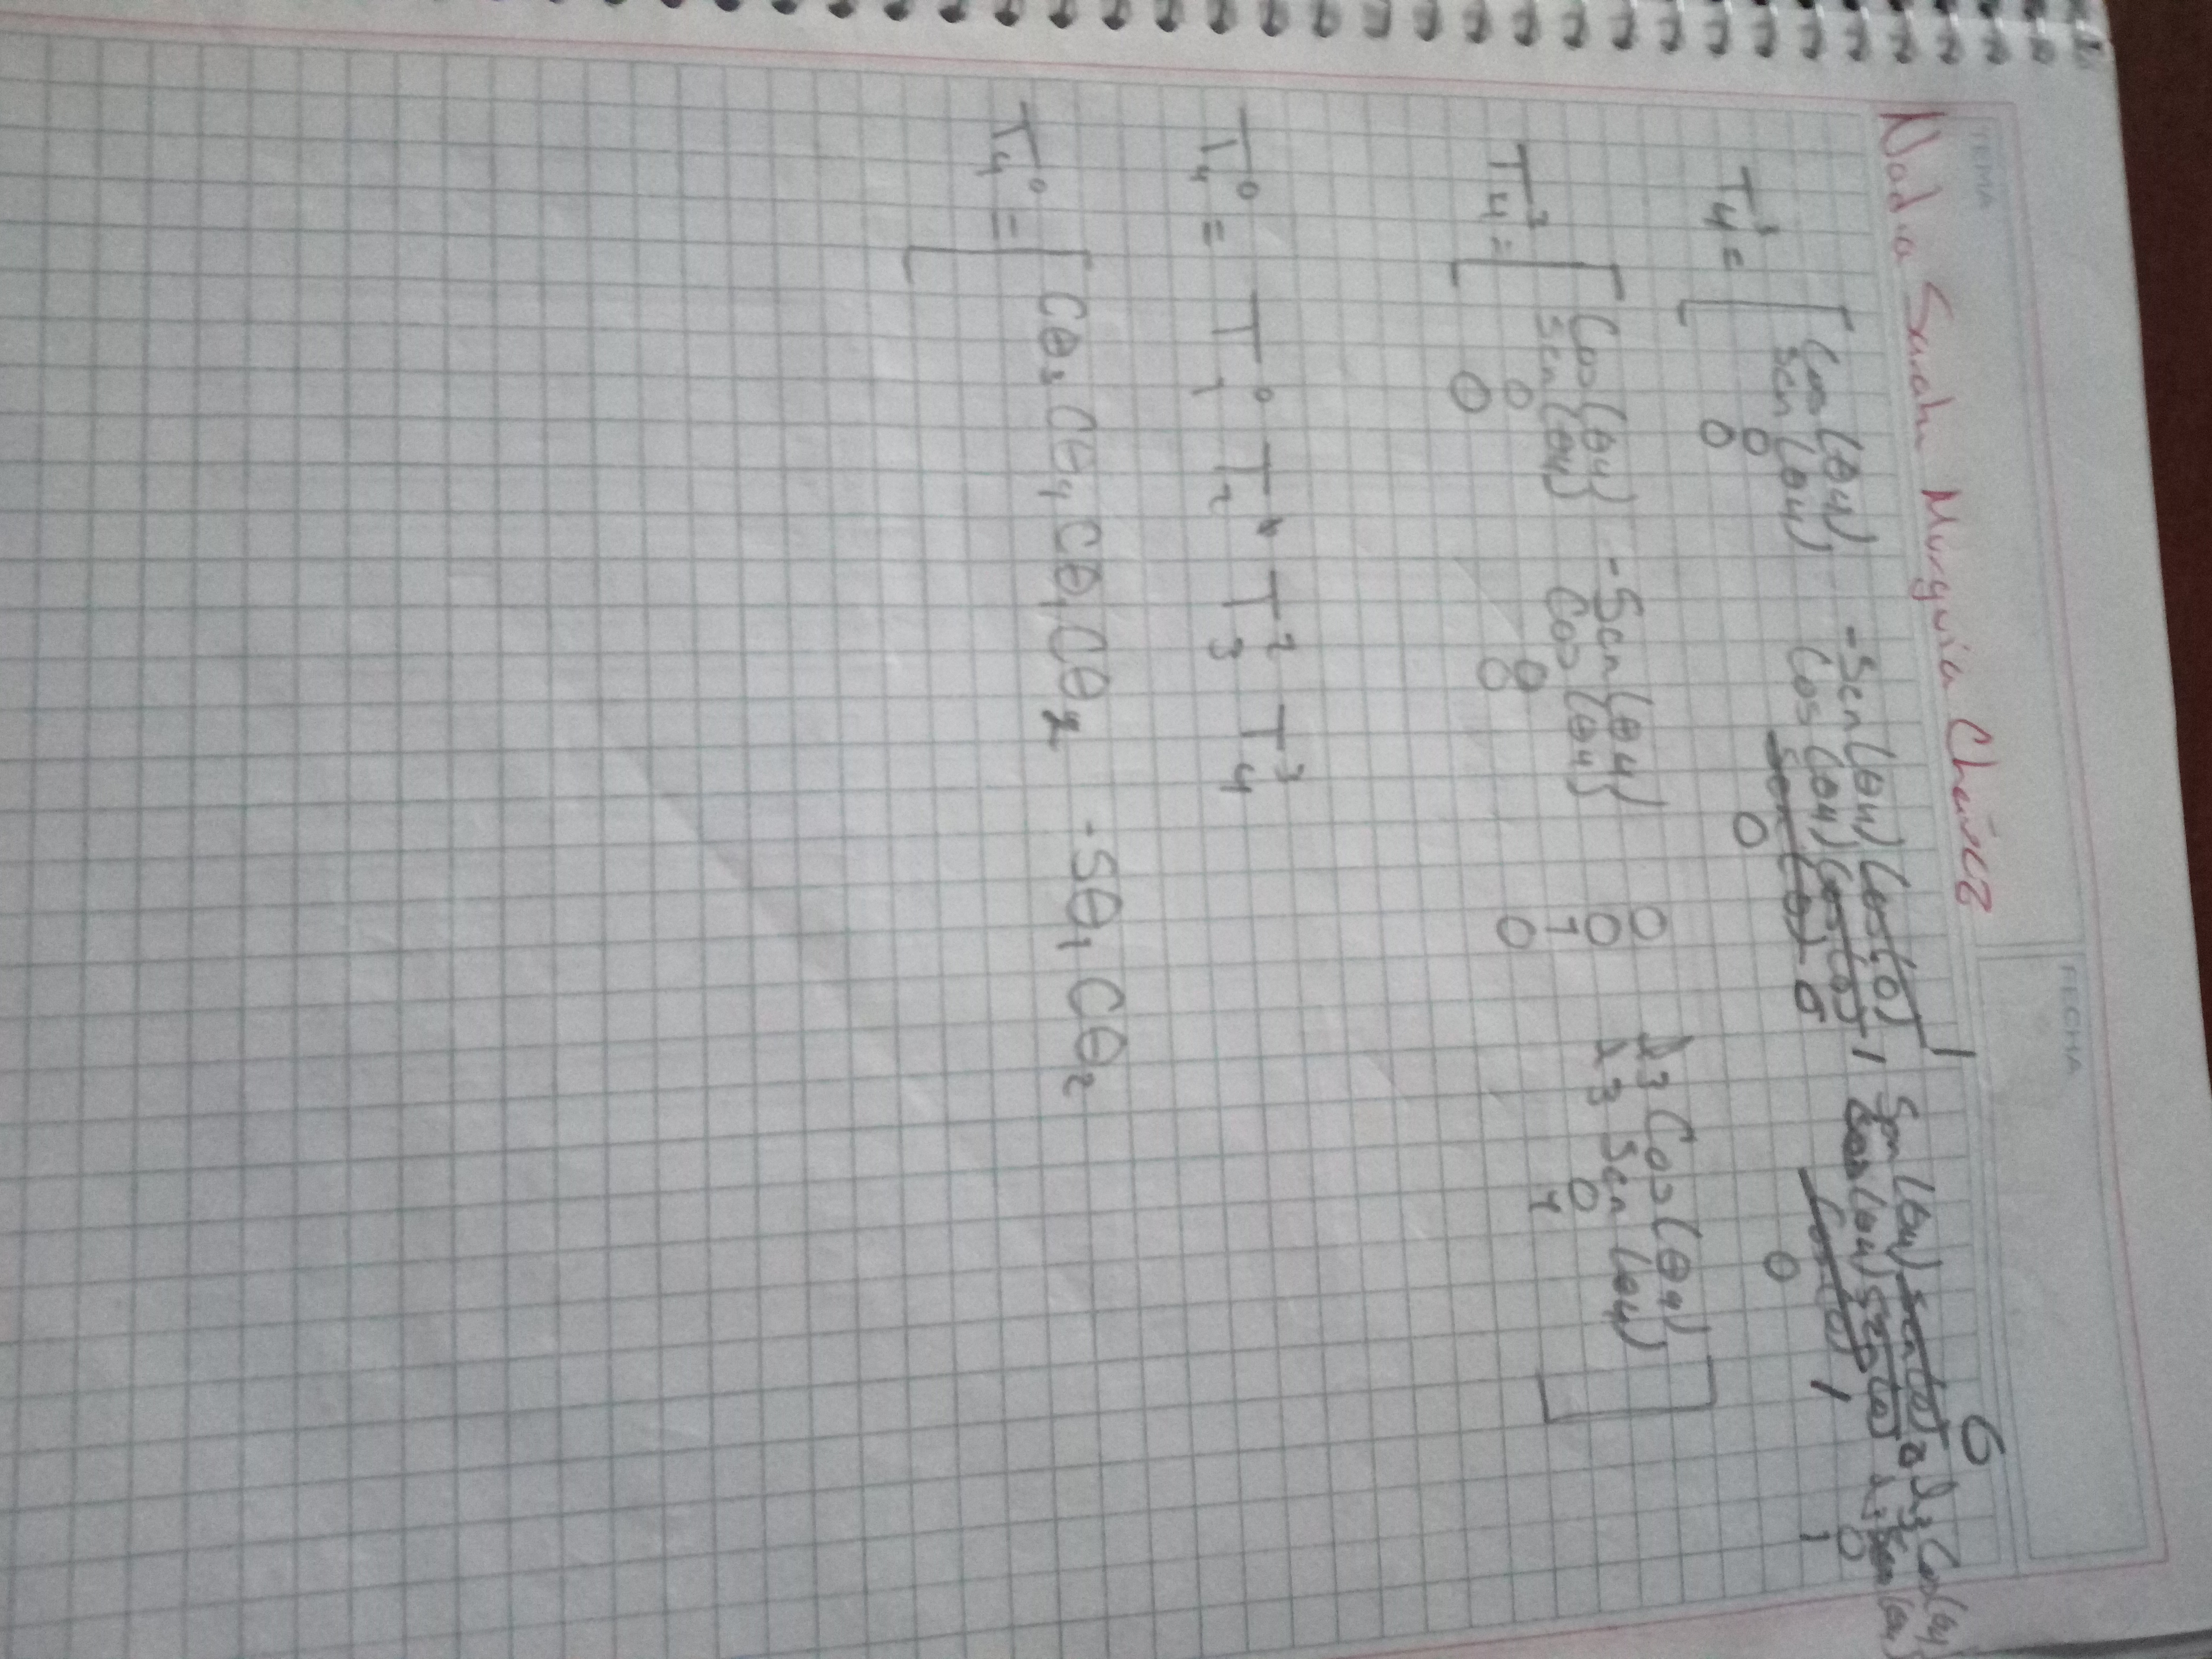 TEMA
FECHA
Nadia Sarahi Murguia Chávez
T₄³ = [ Cos(θ4) -Sen(θ4) Cos(0) 1 Sen(θ4) Sen(0) 0 l3 Cos(θ4)
Sen(θ4) Cos(θ4) Cos(0) 1 Cos(θ4) Sen(0) l3 Sen(θ4)
0 Sen(0) 0 Cos(0) 1 0
0 0 0 1
T₄³ = [ Cos(θ4) -Sen(θ4) 0 l3 Cos(θ4) ]
Sen(θ4) Cos(θ4) 0 l3 Sen(θ4)
0 0 1 0
0 0 0 1
T₄⁰ = T₁⁰ T₂¹ T₃² T₄³
T₄⁰ = [ Cθ₃ Cθ₄ Cθ₁ Cθ₂ -Sθ₁ Cθ₂